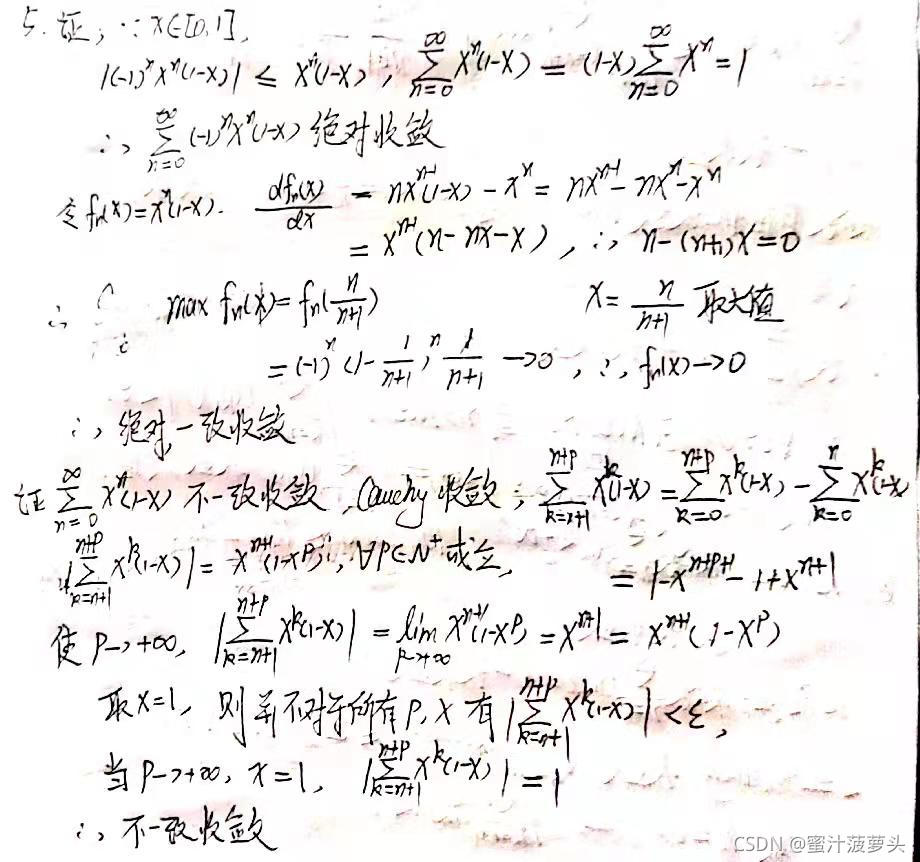 5. 证: ∵ x∈[0,1],
|(-1)^n x^n(1-x)| ≤ x^n(1-x), ∑_{n=0}^{∞} x^n(1-x) = (1-x)∑_{n=0}^{∞} x^n = 1
∴ ∑_{n=0}^{∞} (-1)^n x^n(1-x) 绝对收敛
令 f_n(x)=x^n(1-x). df_n(x)/dx = nx^{n-1}(1-x) - x^n = nx^{n-1} - nx^n - x^n
= x^{n-1}(n-nx-x), ∴ n-(n+1)x=0
∴ max f_n(x) = f_n(n/(n+1)) x = n/(n+1) 取大值
= (-1)^n (1-1/(n+1))^n 1/(n+1) →0, ∴ f_n(x)→0
∴ 绝对一致收敛
证 ∑_{n=0}^{∞} x^n(1-x) 不一致收敛, Cauchy 收敛, ∑_{k=n+1}^{n+p} x^k(1-x) = ∑_{k=0}^{n+p} x^k(1-x) - ∑_{k=0}^{n} x^k(1-x
|∑_{k=n+1}^{n+p} x^k(1-x)| = x^{n+1}(1-x^p), ∀P∈N^+ 成立, = 1-x^{n+p+1} - 1+x^{n+1}
使 P→+∞, |∑_{k=n+1}^{n+p} x^k(1-x)| = lim_{p→+∞} x^{n+1}(1-x^p) = x^{n+1} = x^{n+1}(1-x^p)
取x=1, 则并不对于所有 P, x 有 |∑_{k=n+1}^{n+p} x^k(1-x)| <ε,
当 P→+∞, x=1, |∑_{k=n+1}^{n+p} x^k(1-x)| = 1
∴ 不一致收敛
CSDN @蜜汁菠萝头